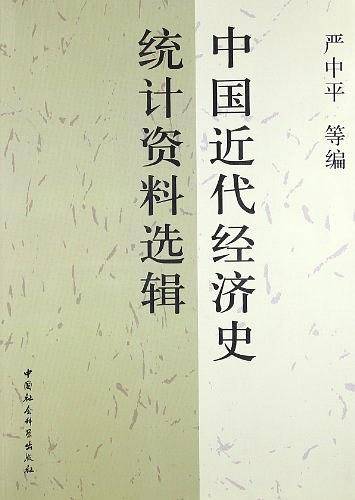 严中平 等编
中国近代经济史
统计资料选辑
中国社会科学出版社